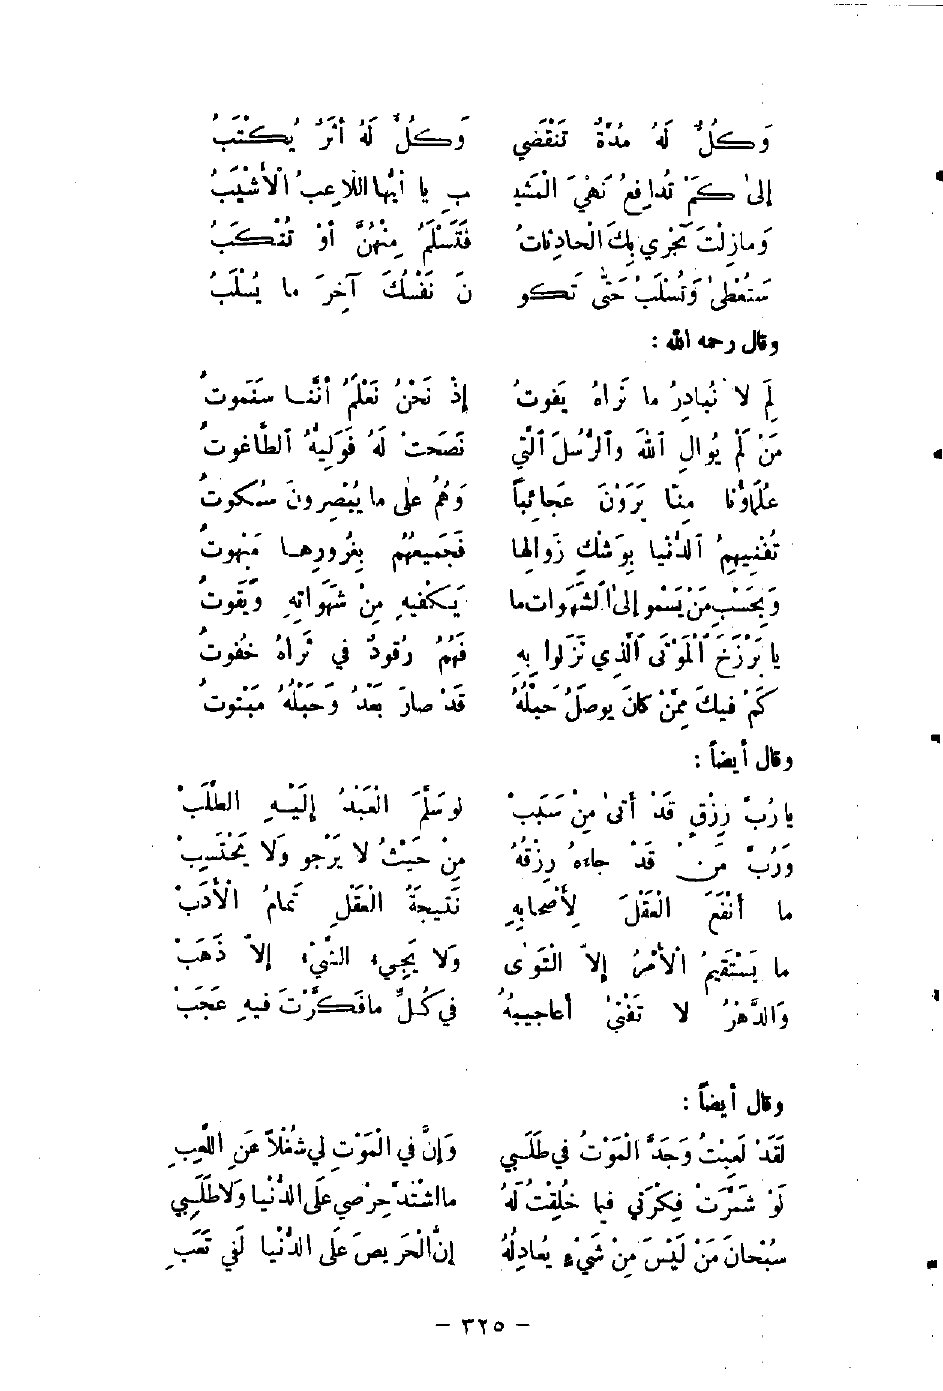 وَكُلٌّ لَهُ مُدَّةٌ تَنْقَضِي وَكُلٌّ لَهُ أَثَرٌ يُكْتَبُ
إِلىٰ كَمْ تُدافِعُ نَهْيَ الْمَشِيـ ـبِ يا أَيُّها اللاَّعِبُ الْأَشْيَبُ
وَمازِلْتَ تَجْرِي بِكَ الْحادِثاتُ فَتَسْلَمُ مِنْهُنَّ أَوْ تُنْكَبُ
سَتُعْطىٰ وَتُسْلَبُ حَتّىٰ تَكو نَ نَفْسُكَ آخِرَ ما يُسْلَبُ
وقال رحمه الله :
لِمَ لا نُبادِرُ ما نَراهُ يَفوتُ إِذْ نَحْنُ نَعْلَمُ أَنَّنا سَنَموتُ
مَنْ لَمْ يُوالِ اللهَ وَالرُّسُلَ الَّتي نَصَحَتْ لَهُ فَوَلِيُّهُ الطَّاغوتُ
عُلَمَاؤُنا مِنّا يَرَوْنَ عَجائِباً وَهُمُ عَلى ما يُبْصِرونَ سُكوتُ
تُفْنِيهِمُ الدُّنْيا بِوَشْكِ زَوالِها فَجَميعُهُم بِغُرورِها مَبْهوتُ
وَبِحَسْبِ مَنْ يَسْمو إِلىَ الشَّهَوات ما يَكْفيهِ مِنْ شَهَواتِهِ وَيَقوتُ
يا بَرْزَخَ الْمَوْتى الَّذي نَزَلوا بِهِ فَهُمُ رُقودٌ في ثَراهُ خُفوتُ
كَمْ فيكَ مِمَّنْ كانَ يوصَلُ حَبْلُهُ قَدْ صارَ بَعْدُ وَحَبْلُهُ مَبْتوتُ
وقال أيضاً :
يا رُبَّ رِزْقٍ قَدْ أَتىٰ مِنْ سَبَبْ لو سَلَّمَ الْعَبْدُ إِلَيْهِ الطَّلَبْ
وَرُبَّ مَنْ قَدْ جاءَهُ رِزْقُهُ مِنْ حَيْثُ لا يَرْجو وَلا يَحْتَسِبْ
ما أَنْفَعَ الْعَقْلَ لِأَصْحابِهِ نَتيجَةُ الْعَقْلِ تَمامُ الْأَدَبْ
ما يَسْتَقيمُ الْأَمْرُ إِلاَّ الْتَوىٰ وَلا يَجِيءُ الشَّيْءُ إِلاَّ ذَهَبْ
وَالدَّهْرُ لا تَفْنىٰ أعاجيبُهُ في كُلِّ ما فَكَّرْتَ فيهِ عَجَبْ
وقال أيضاً :
لَقَدْ لَعِبْتُ وَجَدَّ الْمَوْتُ في طَلَبي وَإِنَّ في الْمَوْتِ لي شُغْلاً عَنِ اللَّعِبِ
لَوْ شَمَّرَتْ فِكْرَتي فيما خُلِقْتُ لَهُ ما اشْتَدَّ حِرْصي عَلَى الدُّنْيا وَلا طَلَبِي
سُبْحانَ مَنْ لَيْسَ مِنْ شَيْءٍ يُعادِلُهُ إِنَّ الْحَريصَ عَلَى الدُّنْيا لَفي تَعَبِ
- ٣٢٥ -